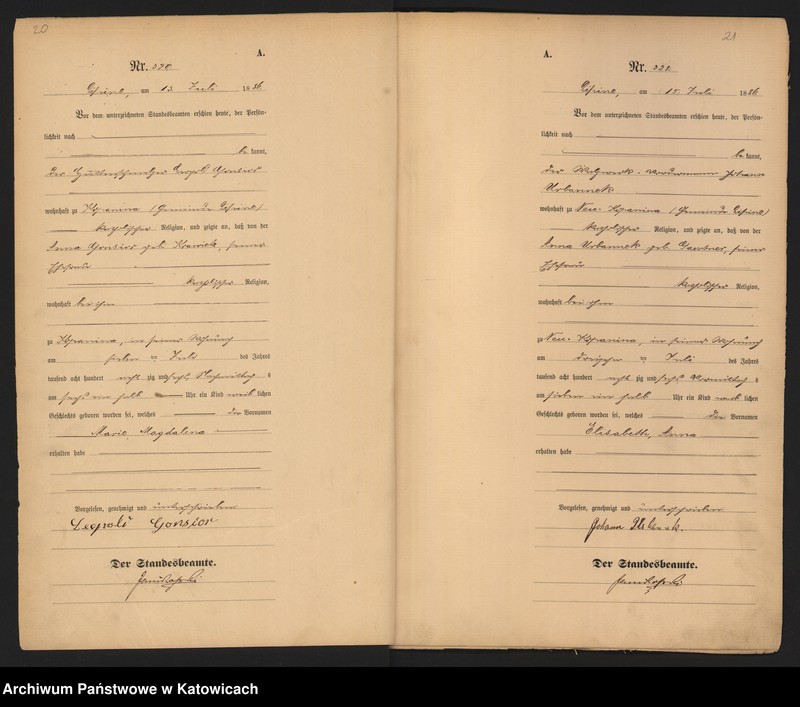 20
A.
Nr. 320.
am 13 Juli 1886.
Vor dem unterzeichneten Standesbeamten erschien heute, der Persön-
lichkeit nach
be kannt,
der
wohnhaft zu Klopanina (Gemeinde
katholischer Religion, und zeigte an, daß von der
Anna Gonsior geb. seiner
Ehefrau
katholischer Religion,
wohnhaft bei ihm
zu in seiner Wohnung
am ten Juli des Jahres
tausend acht hundert acht zig und sechs Nachmittags
um sechs ein halb Uhr ein Kind weib lichen
Geschlechts geboren worden sei, welches der Vornamen
Marie, Magdalena
erhalten habe
Vorgelesen, genehmigt und unterschrieben
Leopold Gonsior
Der Standesbeamte.
21
A.
Nr. 321.
am 15 Juli 1886.
Vor dem unterzeichneten Standesbeamten erschien heute, der Persön-
lichkeit nach
be kannt,
der Johann
Urbannek
wohnhaft zu Neu-Klopanina (Gemeinde
katholischer Religion, und zeigte an, daß von der
Anna Urbannek geb. seiner
Ehefrau
katholischer Religion,
wohnhaft bei ihm
zu in seiner Wohnung
am ten Juli des Jahres
tausend acht hundert acht zig und sechs Vormittags
um sieben ein halb Uhr ein Kind weib lichen
Geschlechts geboren worden sei, welches die Vornamen
Elisabeth, Anna
erhalten habe
Vorgelesen, genehmigt und unterschrieben
Johann
Der Standesbeamte.
Archiwum Państwowe w Katowicach